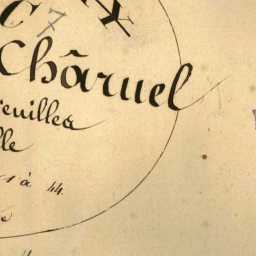 C X
7
Châruel
reuilles
lle
1 à 44.